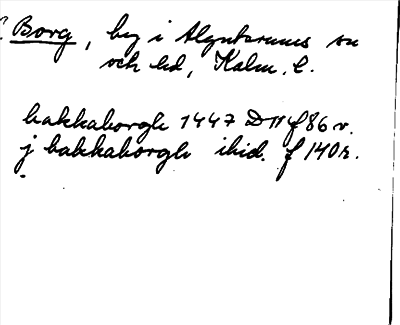 Borg, by i Algutsrums sn
och hd, Kalm. l.
bakkaborgh 1447 D 11 f 86 v.
j bakkaborgh ibid. f 140 r.